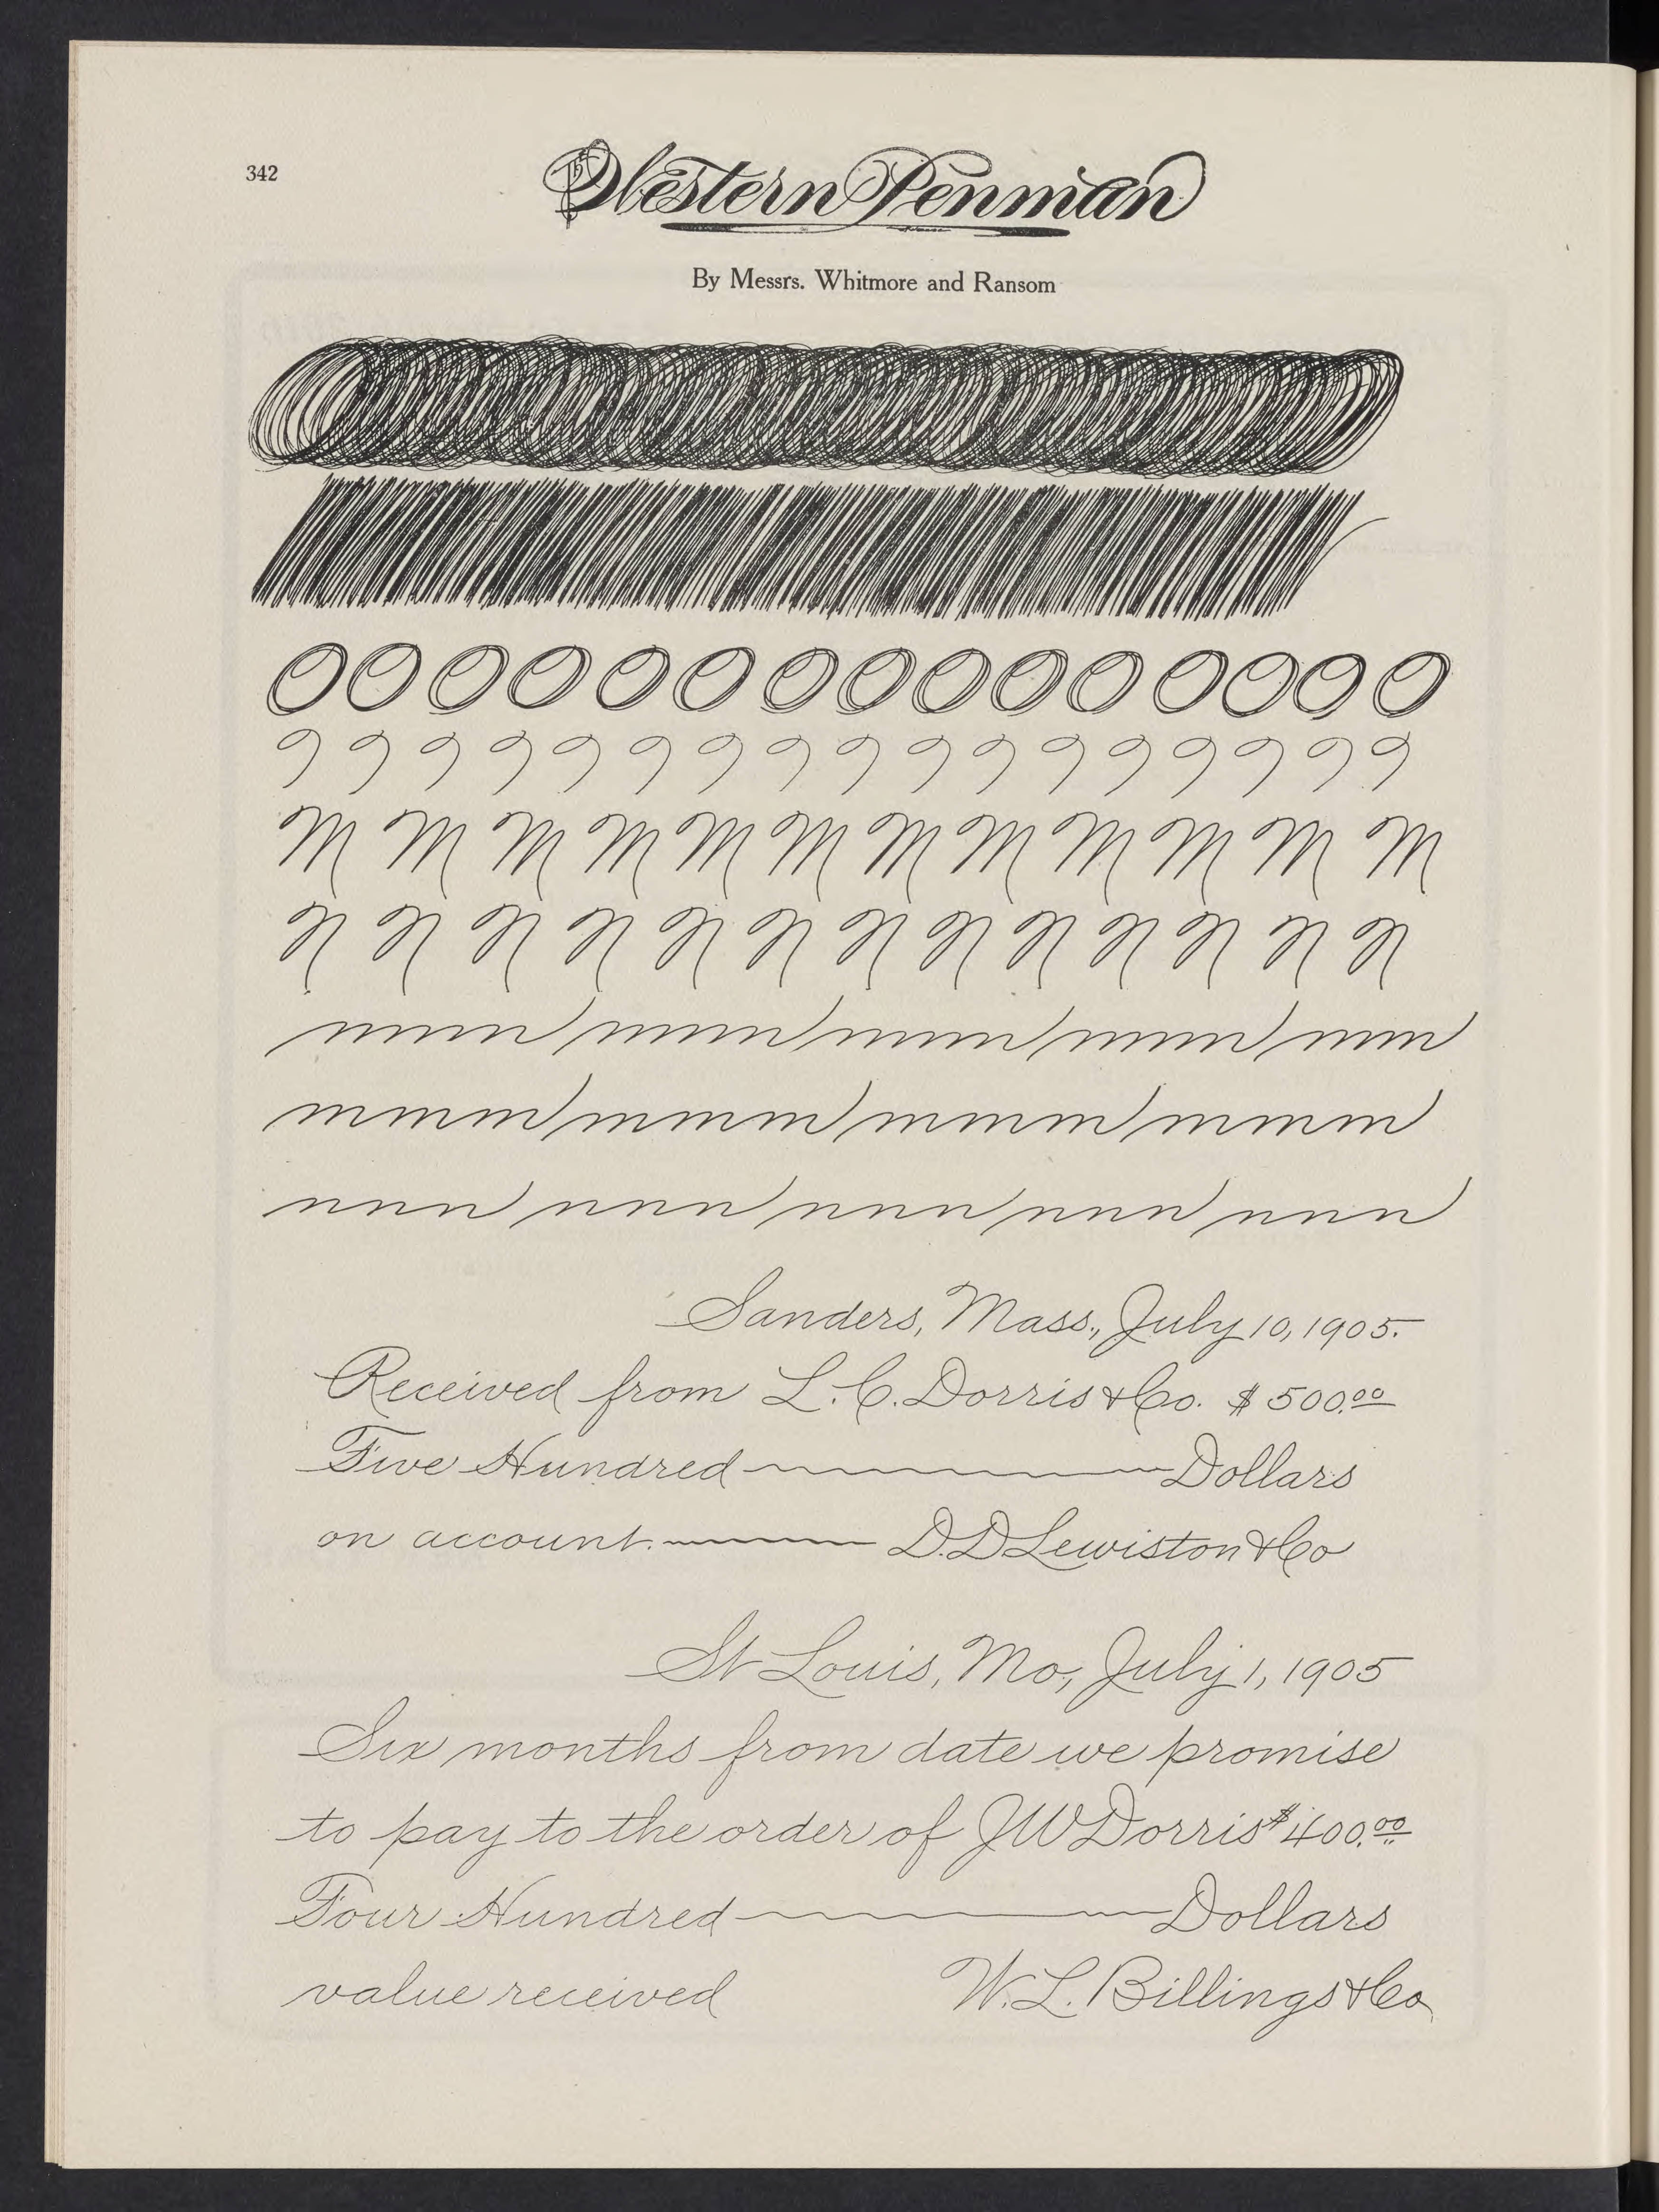 342
The Western Penman
By Messrs. Whitmore and Ransom
O O O O O O O O O O O O O O O
M M M M M M M M M M M M
N N N N N N N N N N N N N
mmm mmm mmm mmm
nnn nnn nnn nnn nnn
Sanders, Mass., July 10, 1905.
Received from L. C. Dorris & Co. $500.00
Five Hundred Dollars
on account. D.D Lewiston & Co
St Louis, Mo., July 1, 1905
Six months from date we promise
to pay to the order of J W Dorris $400.00
Four Hundred Dollars
value received W. L. Billings & Co.